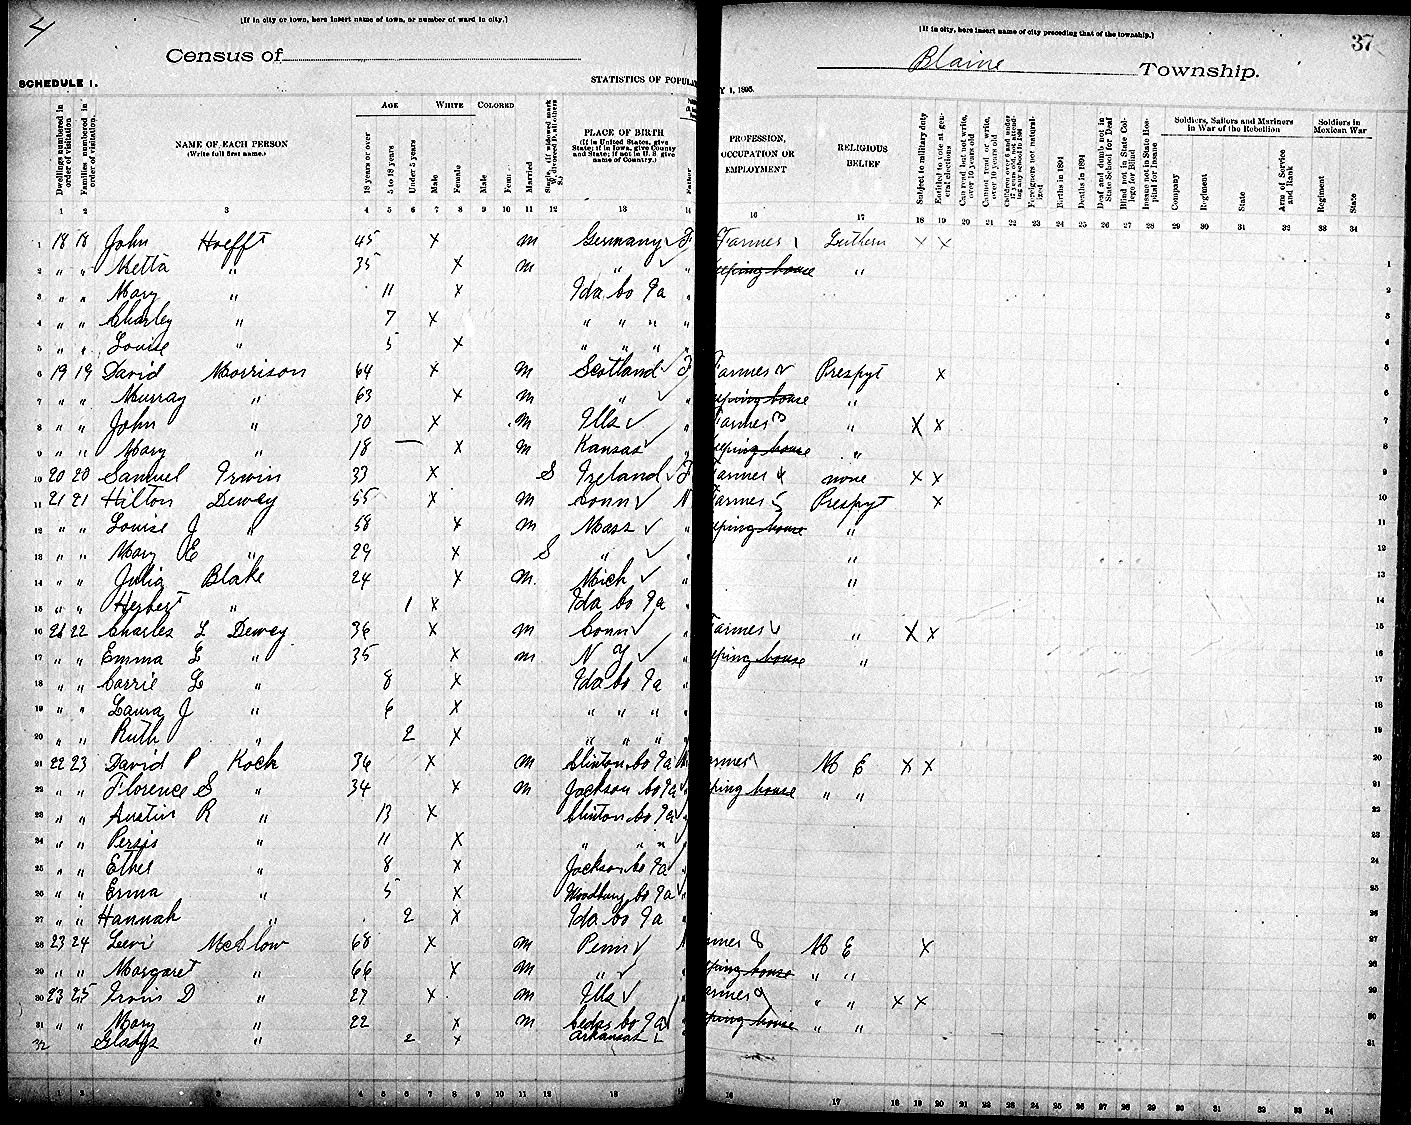 4
[If in city or town, here insert name of town, or number of ward in city.]
Census of
SCHEDULE 1. STATISTICS OF POPULA
Dwellings numbered in order of visitation
Families numbered in order of visitation.
NAME OF EACH PERSON
(Write full first name.)
AGE
18 years or over
5 to 18 years
Under 5 years
WHITE
Male
Female
COLORED
Male
Married
PLACE OF BIRTH
(If in United States, give State; if in Iowa, give County and State; if not in U. S. give name of Country.)
Father
1 2 3 4 5 6 7 8 9 10 11 12 13 14
[If in city, here insert name of city preceding that of the township.]
37
Blaine Township.
Y 1, 1895.
PROFESSION, OCCUPATION OR EMPLOYMENT
RELIGIOUS BELIEF
Subject to military duty
Entitled to vote at general elections
Can read but not write, over 10 years old
Cannot read or write, over 10 years old
Foreigners not naturalized
Births in 1894
Deaths in 1894
Deaf and dumb not in State School for Deaf
Blind not in State College for Blind
Insane not in State Hospital for Insane
Soldiers, Sailors and Mariners in War of the Rebellion
Company
Regiment
State
Arm of Service and Rank
Soldiers in Mexican War
Regiment
State
16 17 18 19 20 21 22 23 24 25 26 27 28 29 30 31 32 33 34
1 18 18 John Hoefft 45 x m Germany F Farmer 1 Luthern x x
2 " " Metta " 35 x m " " eeping house "
3 " " Mary " 11 x Ida Co Ia "
4 " " Charley " 7 x " " " "
5 " " Louise " 5 x " " " "
6 19 19 David Morrison 64 x m Scotland F Farmer 2 Prespyt x
7 " " Murray " 63 x m " eeping house "
8 " " John " 30 x m Ills Farmer 3 " x x
9 " " Mary " 18 x m Kansas eeping house "
10 20 20 Samuel Irwin 33 x S Ireland F Farmer 4 none x x
11 21 21 Hilton Dewey 55 x m Conn N Farmer 5 Prespyt x
12 " " Louise J " 58 x m Mass " eping house "
13 " " Mary E " 29 x S " " "
14 " " Julia Blake 24 x m. Mich " "
15 " " Herbert " 1 x Ida Co Ia
16 21 22 Charles L Dewey 36 x m Conn armer " x x
17 " " Emma L " 35 x m N Y eping house "
18 " " Carrie L " 8 x Ida Co Ia "
19 " " Laura J " 6 x " " " "
20 " " Ruth " 2 x " " " "
21 22 23 David P Koch 36 x m Clinton Co Ia armer M E x x
22 " " Florence S " 34 x m Jackson Co Ia ping house " "
23 " " Austin R " 13 x Clinton Co Ia
24 " " Persis " 11 x " " "
25 " " Ethel " 8 x Jackson Co Ia
26 " " Erma " 5 x Woodbury Co Ia
27 " " Hannah " 2 x Ida Co Ia
28 23 24 Levi McClow 68 x m Penn rmer 8 M E x
29 " " Margaret " 66 x m " eping house " "
30 23 25 Irvin D " 27 x m Ills armer 9 " " x x
31 " " Mary " 22 x m Cedar Co Ia ping house " "
32 Gladys " 2 x Arkansas
1 2 3 4 5 6 7 8 9 10 11 12 13 16 17 18 19 20 21 22 23 24 25 26 27 28 29 30 31 32 33 34